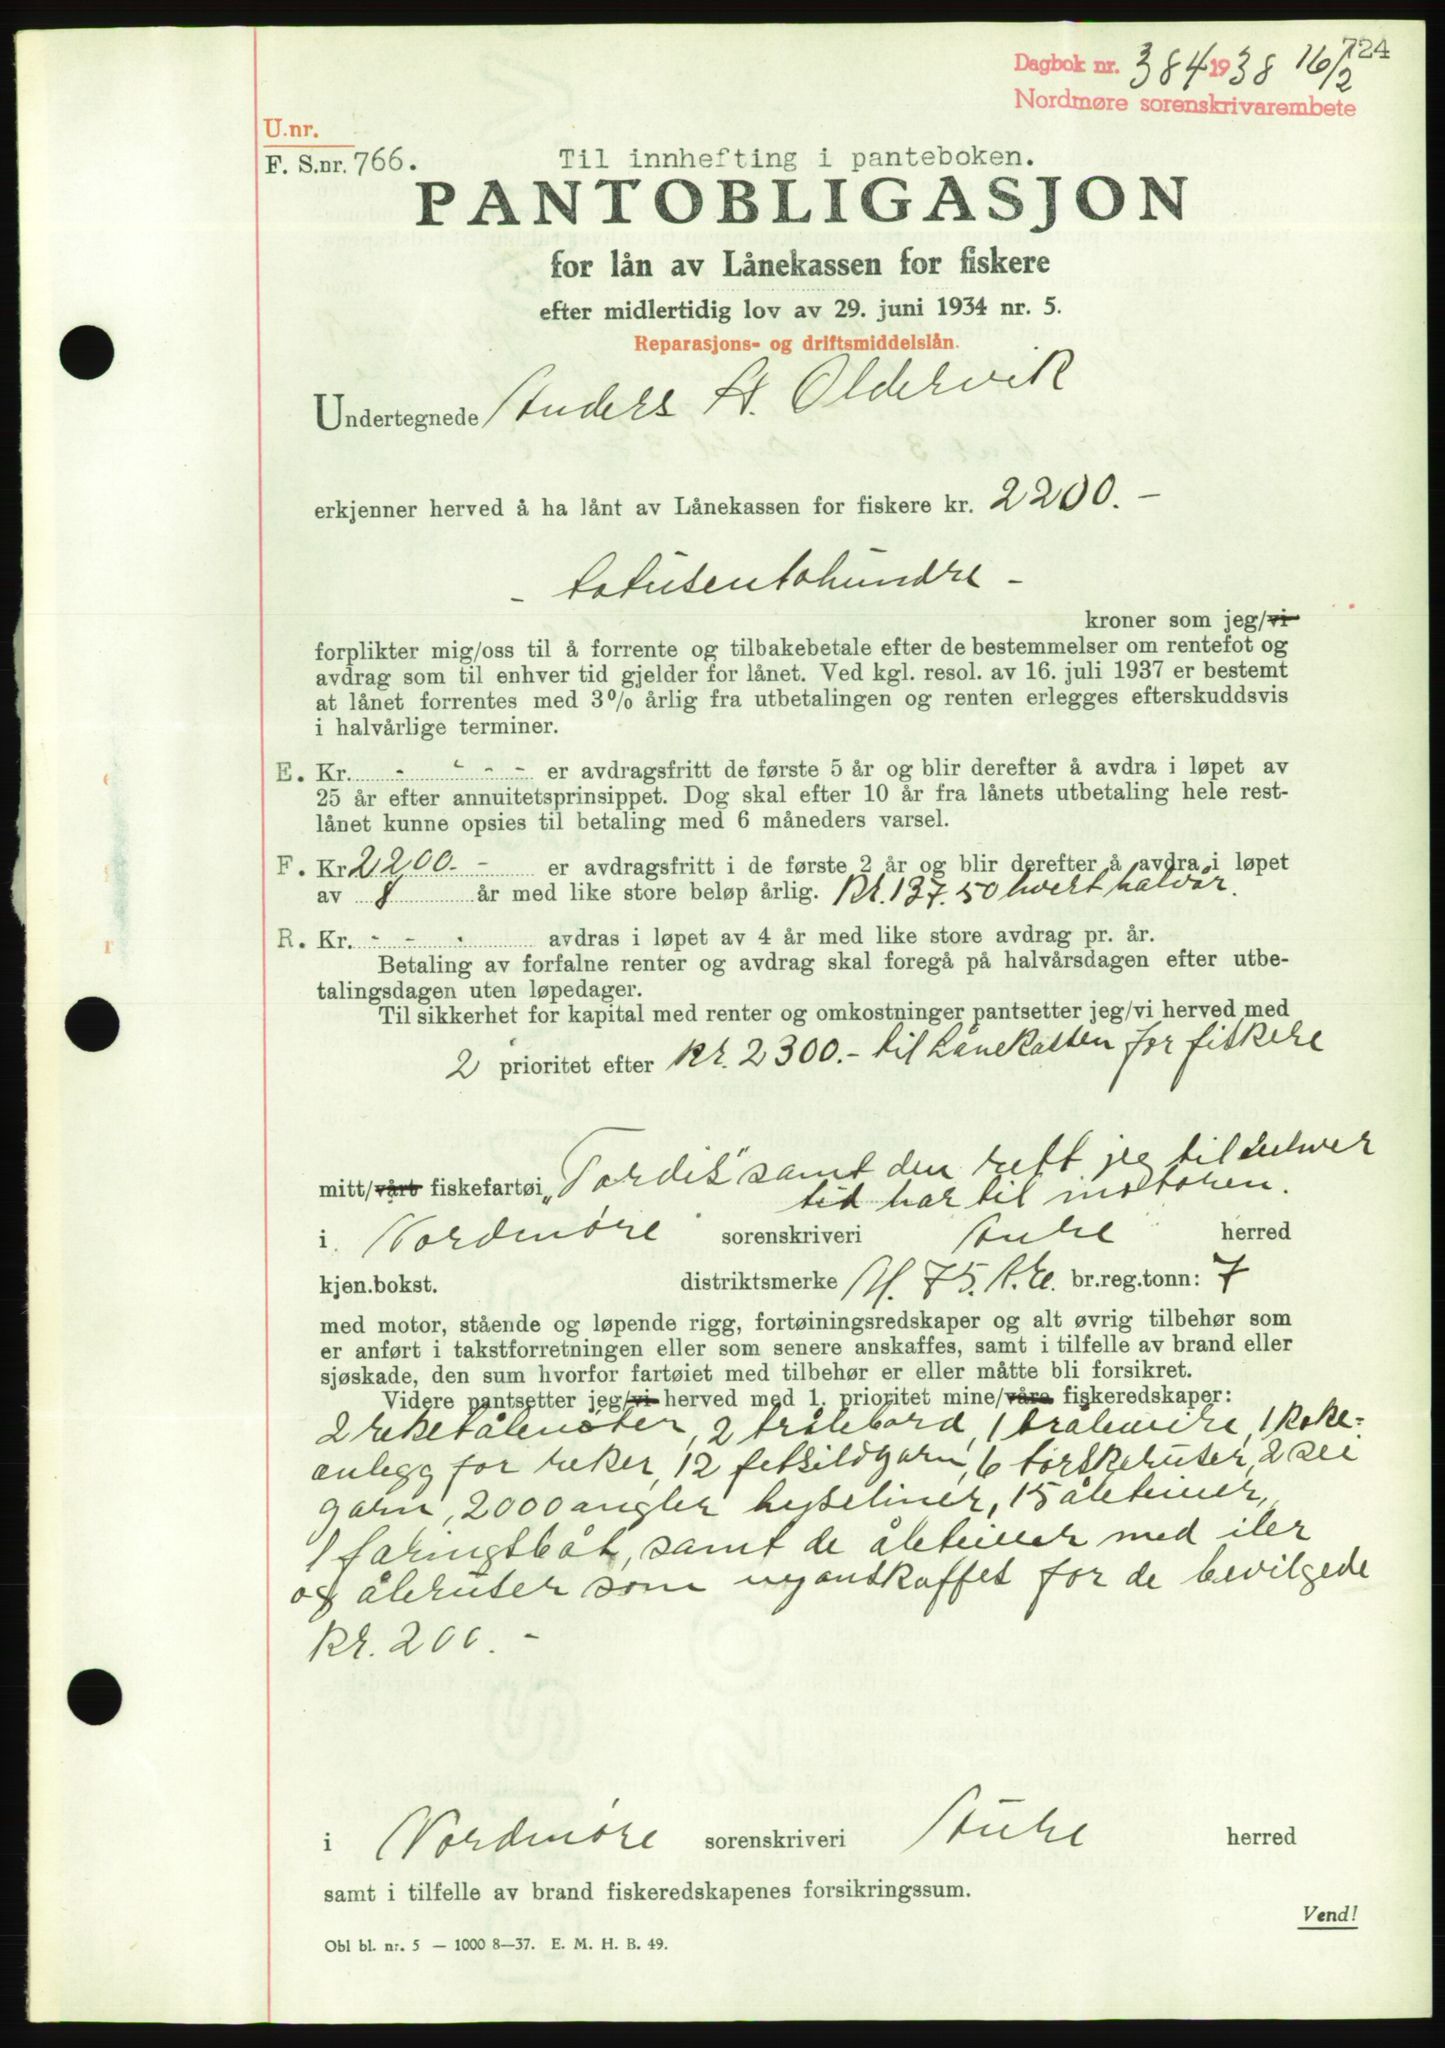 724
Dagbok nr. 384 1938 16/2
Nordmøre sorenskrivarembete
U.nr.
F. S.nr. 766.
Til innhefting i panteboken.
PANTOBLIGASJON
for lån av Lånekassen for fiskere
efter midlertidig lov av 29. juni 1934 nr. 5.
Reparasjons- og driftsmiddelslån.
Undertegnede Anders H. Oldervik
erkjenner herved å ha lånt av Lånekassen for fiskere kr. 2200.-
- totusentohundre -
kroner som jeg/vi
forplikter mig/oss til å forrente og tilbakebetale efter de bestemmelser om rentefot og
avdrag som til enhver tid gjelder for lånet. Ved kgl. resol. av 16. juli 1937 er bestemt
at lånet forrentes med 3% årlig fra utbetalingen og renten erlegges efterskuddsvis
i halvårlige terminer.
E. Kr. - - - - er avdragsfritt de første 5 år og blir derefter å avdra i løpet av
25 år efter annuitetsprinsippet. Dog skal efter 10 år fra lånets utbetaling hele rest-
lånet kunne opsies til betaling med 6 måneders varsel.
F. Kr 2200.- er avdragsfritt i de første 2 år og blir derefter å avdra i løpet
av 8 år med like store beløp årlig. Kr. 137.50 hvert halvår.
R. Kr. - - - avdras i løpet av 4 år med like store avdrag pr. år.
Betaling av forfalne renter og avdrag skal foregå på halvårsdagen efter utbe-
talingsdagen uten løpedager.
Til sikkerhet for kapital med renter og omkostninger pantsetter jeg/vi herved med
2 prioritet efter kr. 2300.- til Lånekassen for fiskere
mitt/vårt fiskefartøi „Tordis" samt den rett jeg til enhver
tid har til motoren.
i Nordmøre sorenskriveri Aure herred
kjen.bokst. distriktsmerke M. 75. A.re. br.reg.tonn: 7
med motor, stående og løpende rigg, fortøiningsredskaper og alt øvrig tilbehør som
er anført i takstforretningen eller som senere anskaffes, samt i tilfelle av brand eller
sjøskade, den sum hvorfor fartøiet med tilbehør er eller måtte bli forsikret.
Videre pantsetter jeg/vi herved med 1. prioritet mine/våre fiskeredskaper:
2 reketålenøter, 2 trålebord, 1 trålewire, 1 koke-
anlegg for reker, 12 fetsildgarn, 6 torskeruser, 2 sei
garn, 2000 angler hyseliner, 15 åleteiner,
1 færingsbåt, samt de åleteiner med iler
og åleruser som nyanskaffet for de bevilgede
kr. 200.-
i Nordmøre sorenskriveri Aure herred
samt i tilfelle av brand fiskeredskapenes forsikringssum.
Vend!
Obl bl. nr. 5 — 1000 8—37. E. M. H. B. 49.